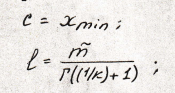 c = x_min ;
ℓ = m̃ / Γ((1/κ) + 1) ;